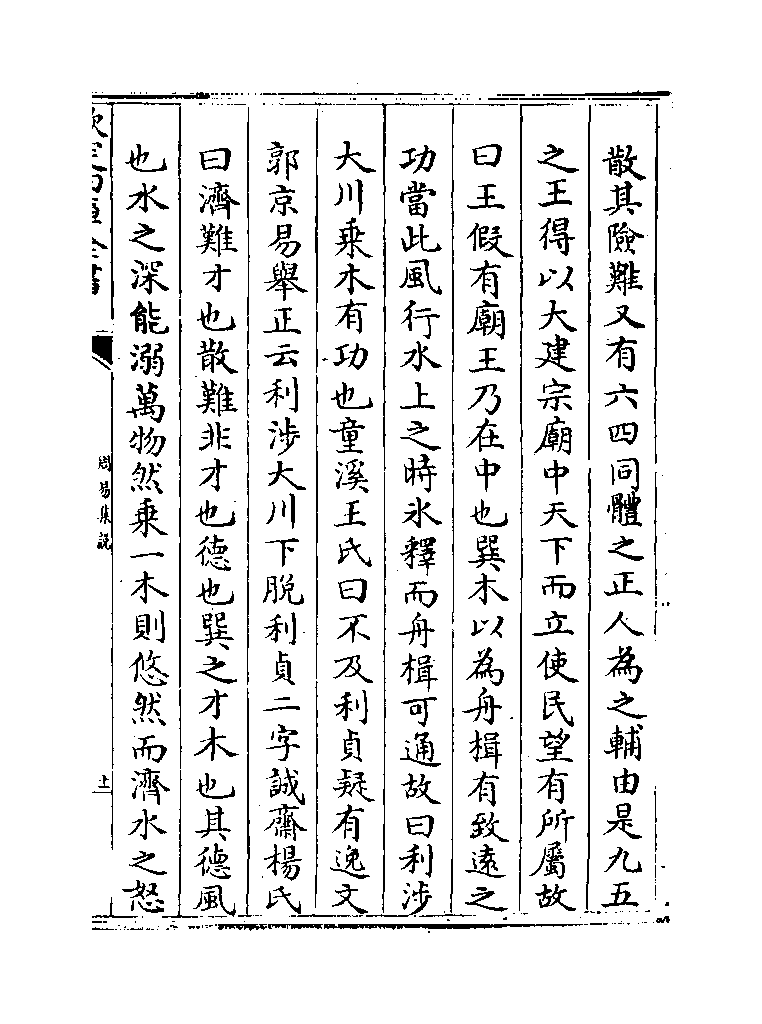 散其險難又有六四同體之正人為之輔由是九五
之王得以大建宗廟中天下而立使民望有所屬故
曰王假有廟王乃在中也巽木以為舟楫有致遠之
功當此風行水上之時氷釋而舟楫可通故曰利涉
大川乗木有功也童溪王氏曰不及利貞疑有逸文
郭京易舉正云利涉大川下脱利貞二字誠齋楊氏
曰濟難才也散難非才也德也巽之才木也其德風
也水之深能溺萬物然乗一木則悠然而濟水之怒
欽定四庫全書
周易集説
十一